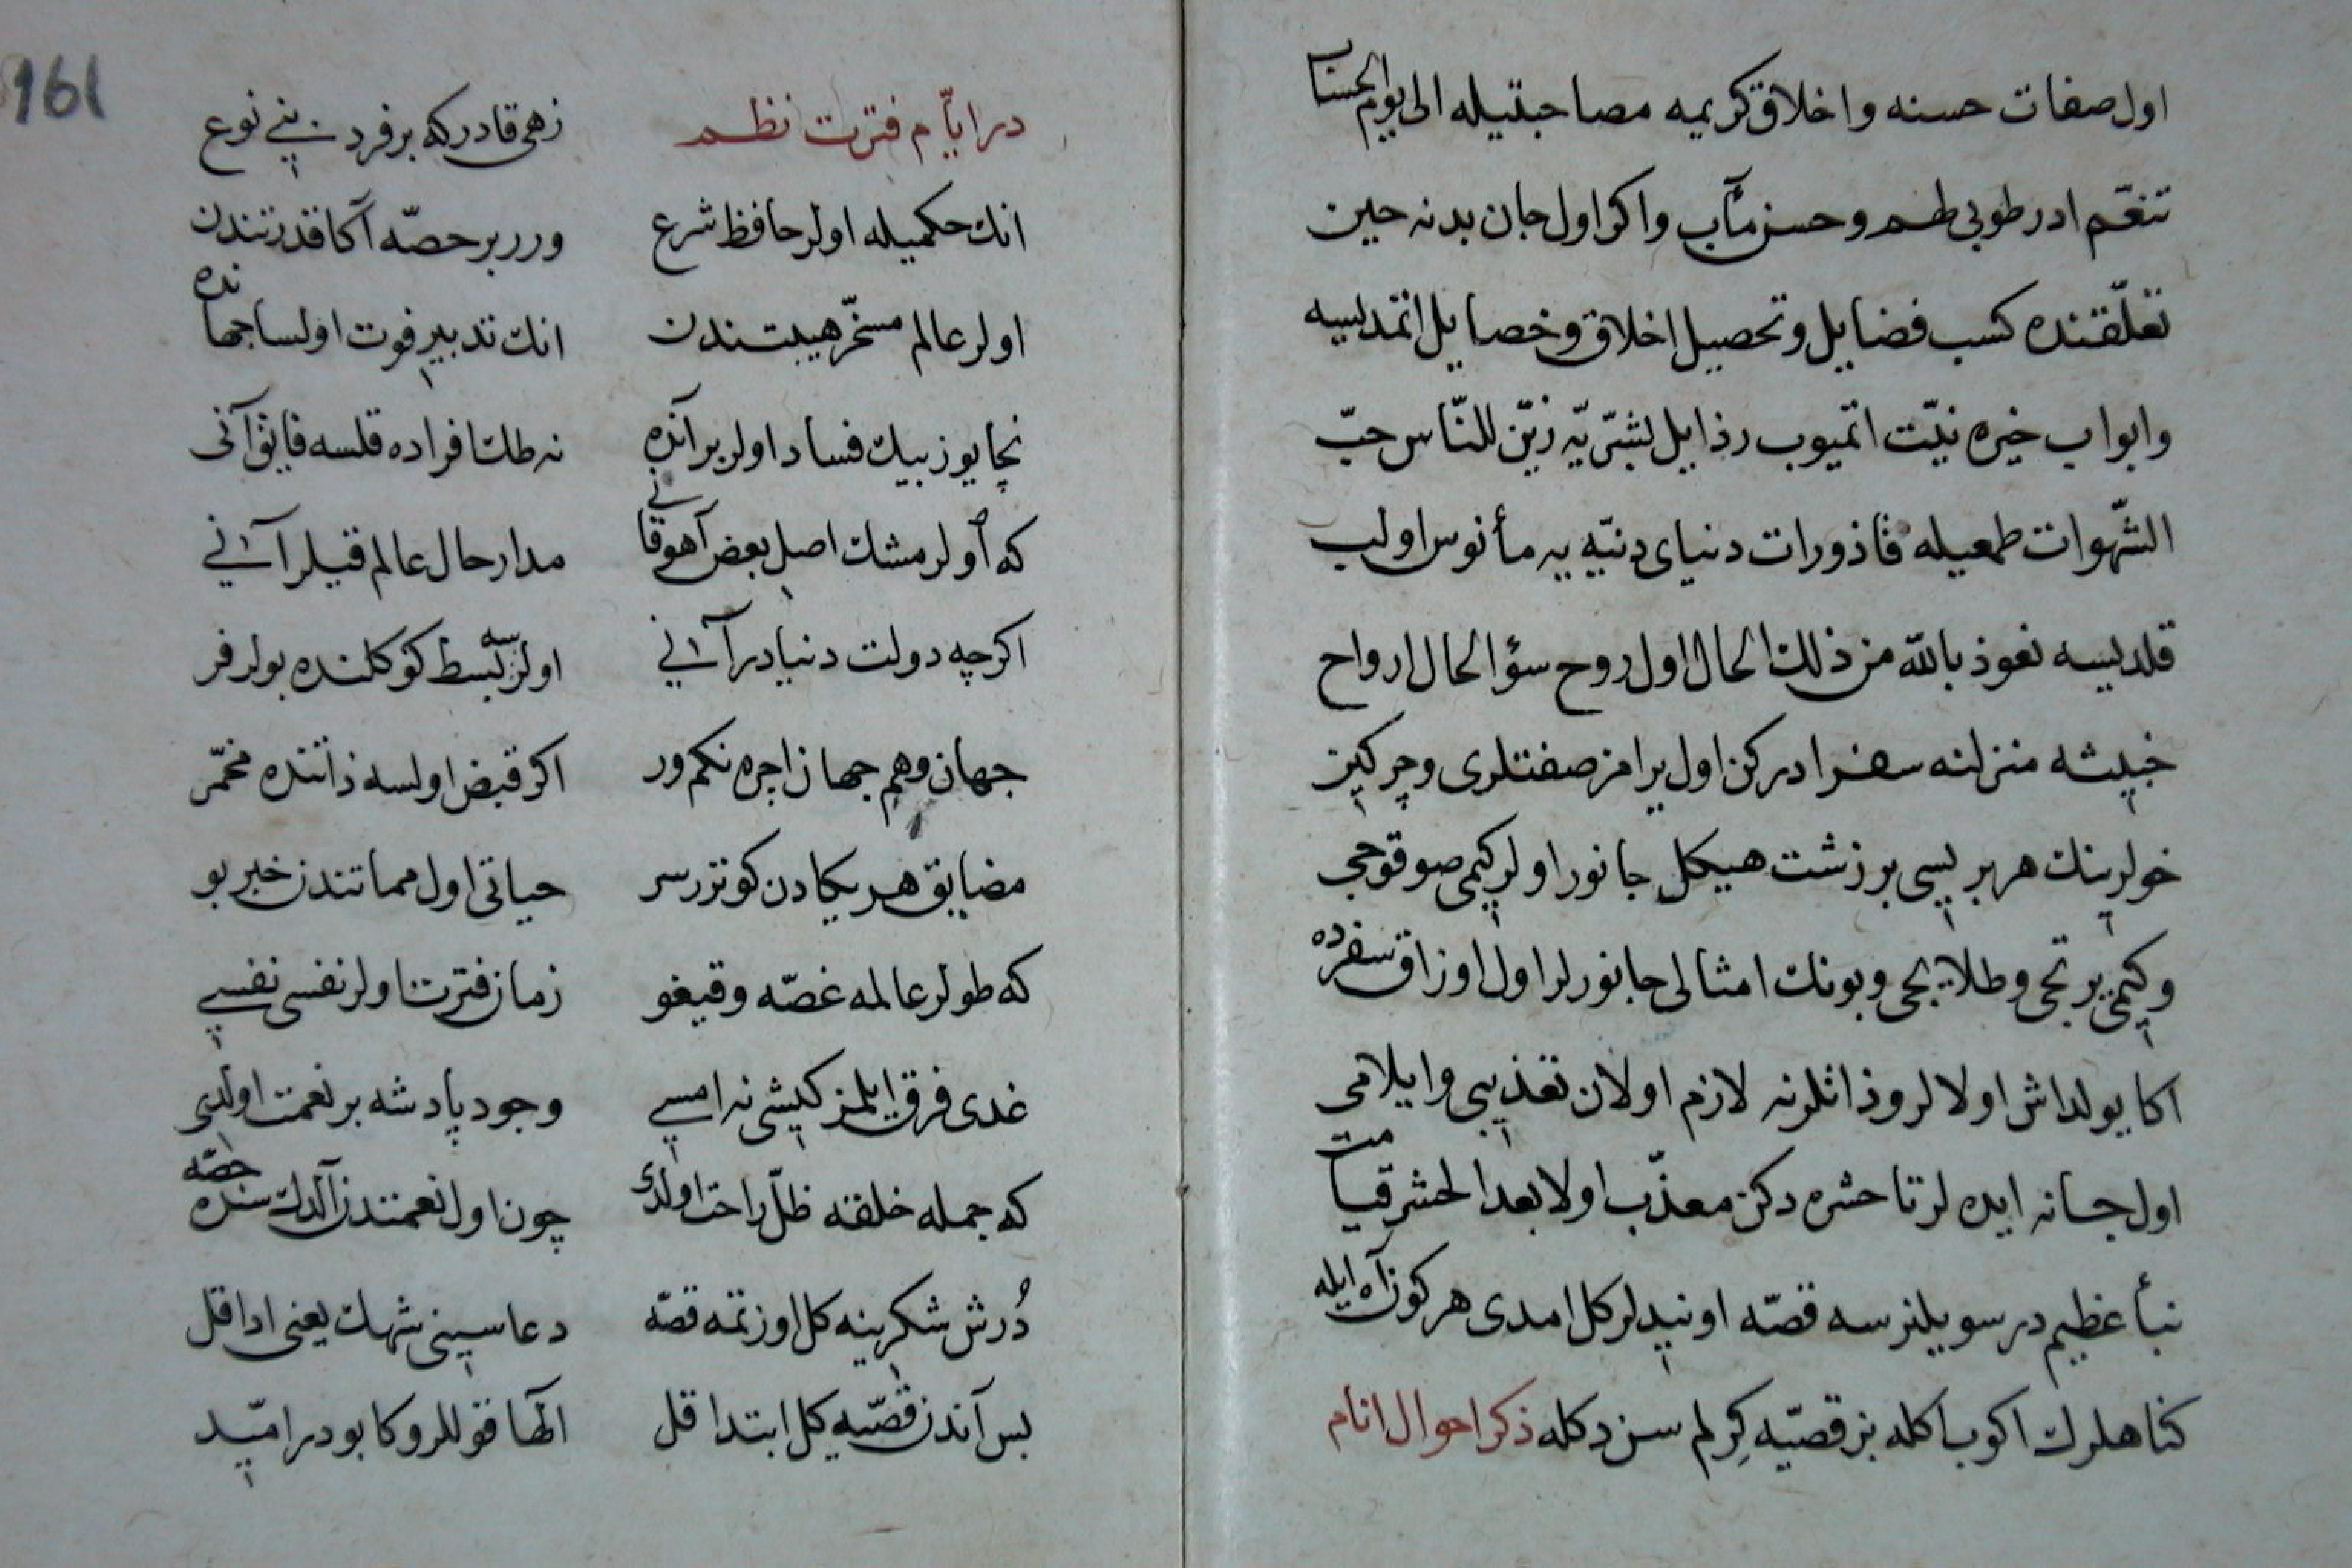 اول صفات حسنه واخلاق كريمه مصاحبتيله الى يوم الحساب
تنعّم ادر طوبى لهم وحسن مآب واكر اول جان بدنه حين
تعلّقنده كسب فضايل وتحصيل اخلاق وخصايل اتمديسه
وابواب خيره نيّت اتميوب رذايل بشريّه زيّن للنّاس حبّ
الشّهوات طمعيله قاذورات دنياى دنيّه يه مأنوس اولب
قلديسه نعوذ بالله من ذلك الحال اول روح سؤ الحال ارواح
خبيثه منزلنه سفر ادركن اول يرامز صفتلرى وچركين
خولرينك هر بريسى بر زشت هيكل جانور اولر كيمى صوقوجى
وكيمى يرتجى وطلايجى وبونك امثالى جانورلر اول اوزاق سفرده
اكا يولداش اولالر وذاتلرنه لازم اولان تعذيبى وايلامى
اول جانه ايده لر تا حشره دكن معذّب اولا بعد الحشر قيامت
نبأ عظيم در سويلنرسه قصّه اونيدلر كل امدى هر كون آه ايله
كناهلرك اكوب اكله بز قصيّه كرلم سن دكله ذكر احوال انام
در ايّام فترت نظم
زهى قادر كه بر فرد بنى نوع
انك حكميله اولر حافظ شرع
ورر بر حصّه آكا قدرتندن
اولر عالم مسخّر هيبتندن
انك تدبير فوت اولسا جهانده
نچا يوز بيك فساد اولر بر آنده
نه طك افراده قلسه فايق آنى
كه اولر مشك اصل بعض آهو قانى
مدار حال عالم قيلر آنى
اكرچه دولت دنيا در آنى
اولرسه بسط كوكلنده بولر فر
جهان وهم جهان اچره نكم ور
اكر قبض اولسه ذاتنده مخمّر
مضايق هر يكادن كوترر سر
حياتى اول مماتندن خبر بو
كه طولر عالمه غصّه وقيغو
زمان فترت اولر نفسى نفسى
غدى فرق ايلمز كيشى نه امسى
وجود پادشه بر نعمت اولدى
كه جمله خلقه ظلّ راحت اولدى
چون اول نعمتندن آلدك سنده حصّه
دُرش شكرينه كل اوزتمه قصّه
دعاسينى شهك يعنى ادا قل
بس آندن قصّيه كل ابتدا قل
الٰها قوللروكا بودر اميّد